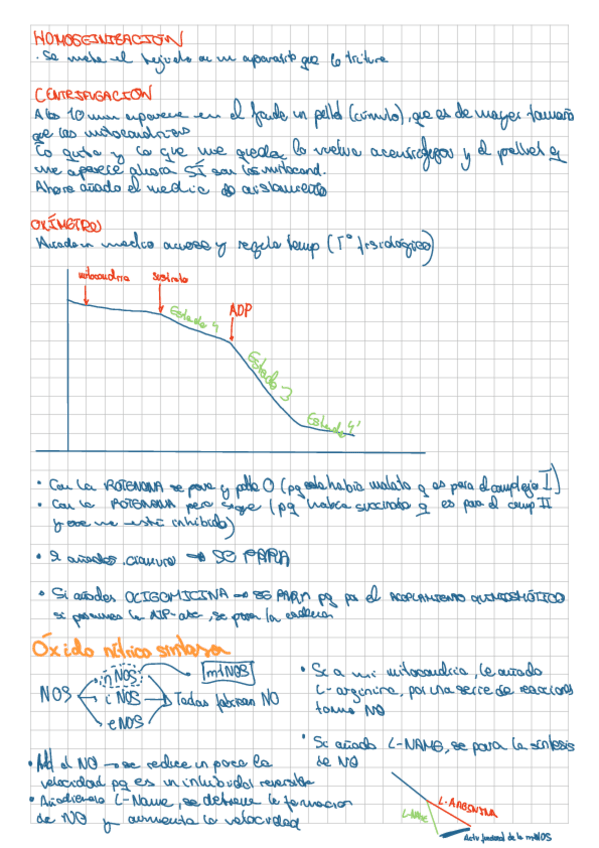 HOMOGENIZACIÓN
· Se mete el tejido en un aparatito que lo tritura
CENTRIFUGACIÓN
A los 10 min aparece en el fondo un pellet (cúmulo), que es de mayor tamaño
que las mitocondrias
Lo quito y lo que me queda lo vuelvo a centrifugar y el pellet q
me aparece ahora SÍ son las mitocond.
Ahora añado el medio de aislamiento
OXÍMETRO
Añaden medio acuoso y regula temp (Tº fisiológica)
mitocondria
sustrato
ADP
Estado 4
Estado 3
Estado 4'
• Con la ROTENONA se para y pdte 0 (pq solo había malato q es para el complejo I)
• Con la ROTENONA pero sigue (pq había succinato q es para el comp II
y ese no está inhibido)
• Si añades cianuro → SE PARA
• Si añades OLIGOMICINA → SE PARA pq por el ACOPLAMIENTO QUIMIOSMÓTICO
si la ATP-asa, se para la cadena
Óxido nítrico sintasa
NOS
nNOS
iNOS
eNOS
mtNOS
Todas fabrican NO
• Si a mi mitocondria, le añado
L-arginina, por una serie de reacciones
formo NO
• Si añado L-NAME, se para la síntesis
de NO
• el NO → se reduce un poco la
velocidad pq es un inhibidor reversible
• Añadiendo L-Name, se detiene la formación
de NO y aumenta la velocidad
L-ARGININA
L-NAME
Activ funcional de la mtNOS